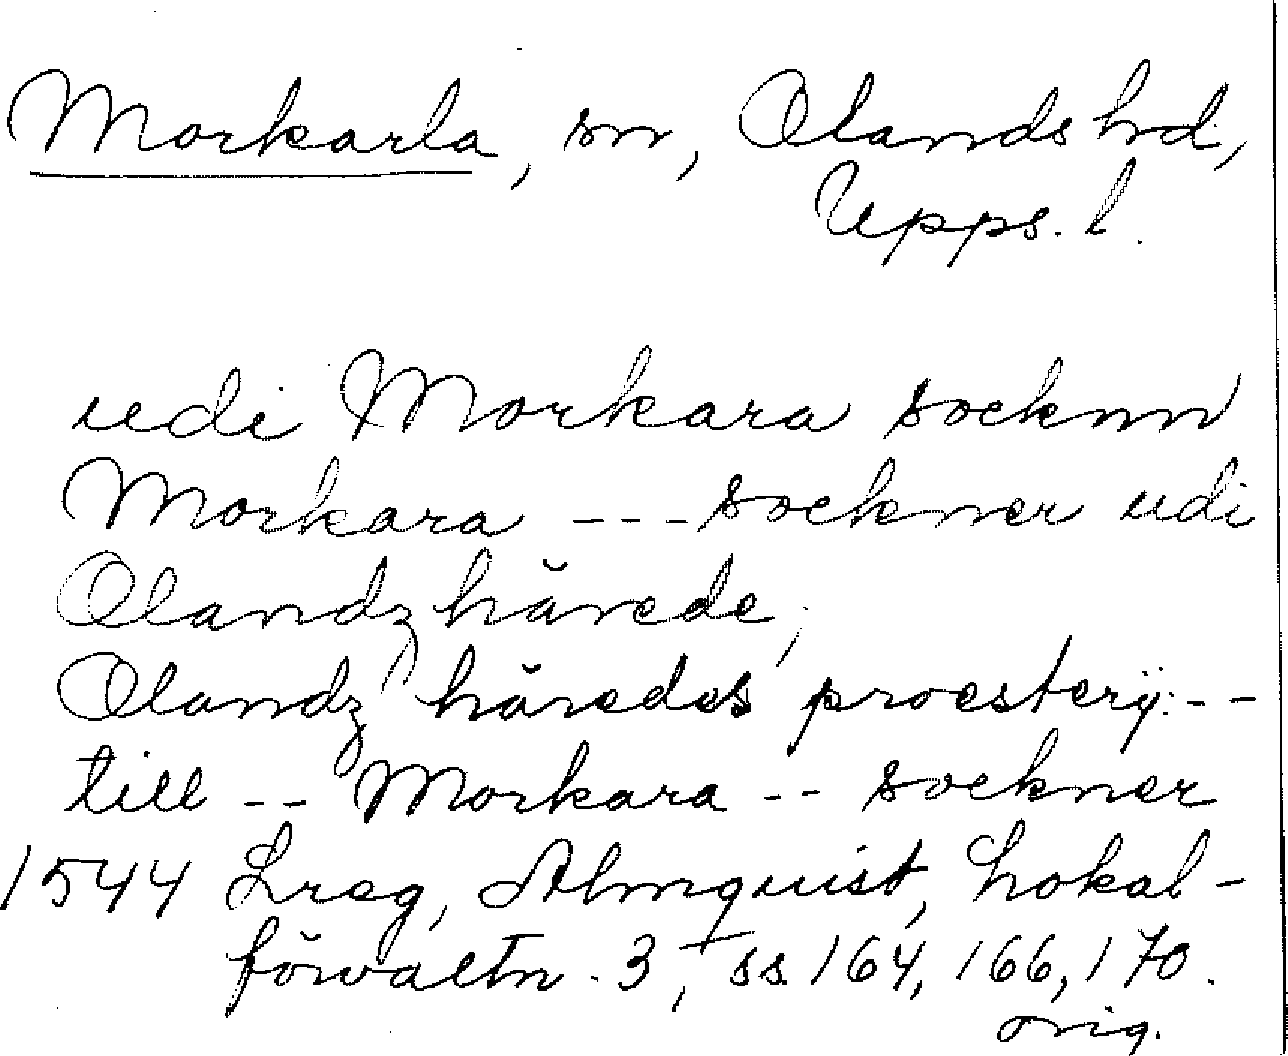 Morkarla, sn, Olands hd,
Upps. l.
udi Morkara socknn
Morkara --- sockner udi
Olandz härede,
Olandz häredes proesterij: --
till -- Morkara -- sockner
1544 Lreg, Almquist, Lokal-
förvaltn. 3, ss. 164, 166, 170.
orig.